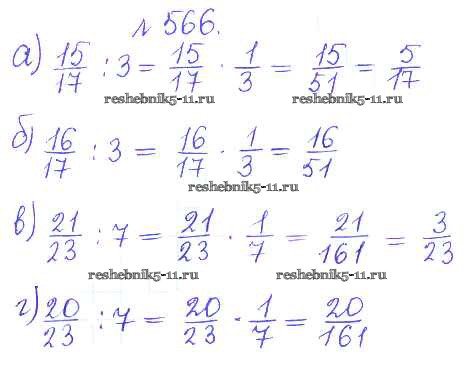 № 566.
а) 15/17 : 3 = 15/17 · 1/3 = 15/51 = 5/17
reshebnik5-11.ru reshebnik5-11.ru
б) 16/17 : 3 = 16/17 · 1/3 = 16/51
reshebnik5-11.ru
в) 21/23 : 7 = 21/23 · 1/7 = 21/161 = 3/23
reshebnik5-11.ru
г) 20/23 : 7 = 20/23 · 1/7 = 20/161